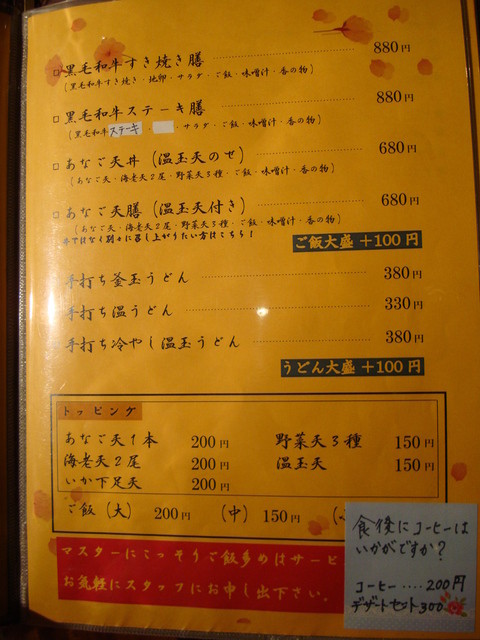 □黒毛和牛すき焼き膳 880円
(黒毛和牛すき焼き・地卵・サラダ・ご飯・味噌汁・香の物)
□黒毛和牛ステーキ膳 880円
(黒毛和牛ステーキ・ ・サラダ・ご飯・味噌汁・香の物)
□あなご天丼(温玉天のせ) 680円
(あなご天・海老天2尾・野菜天3種・ご飯・味噌汁・香の物)
□あなご天膳(温玉天付き) 680円
(あなご天・海老天2尾・野菜天3種・ご飯・味噌汁・香の物)
丼ではなく別々に召し上がりたい方はこちら!
ご飯大盛+100円
手打ち釜玉うどん 380円
手打ち温うどん 330円
手打ち冷やし温玉うどん 380円
うどん大盛+100円
トッピング
あなご天1本 200円 野菜天3種 150円
海老天2尾 200円 温玉天 150円
いか下足天 200円
ご飯(大) 200円 (中) 150円
マスターにこっそりご飯多めはサービ
お気軽にスタッフにお申し出下さい。
食後にコーヒーは
いかがですか?
コーヒー‥‥200円
デザートセット300